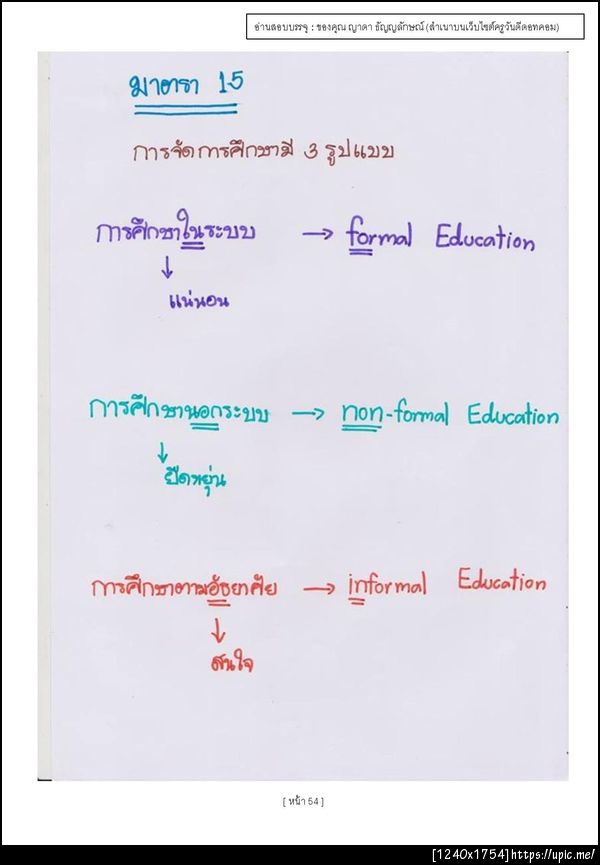 อ่านสอบบรรจุ : ของคุณ ญาดา ธัญญลักษณ์ (สำเนาบนเว็บไซต์ครูวันดีดอทคอม)
มาตรา 15
การจัดการศึกษามี 3 รูปแบบ
การศึกษาในระบบ → formal Education
↓
แน่นอน
การศึกษานอกระบบ → non-formal Education
↓
ยืดหยุ่น
การศึกษาตามอัธยาศัย → informal Education
↓
สนใจ
[ หน้า 54 ]
[1240x1754]https://upic.me/